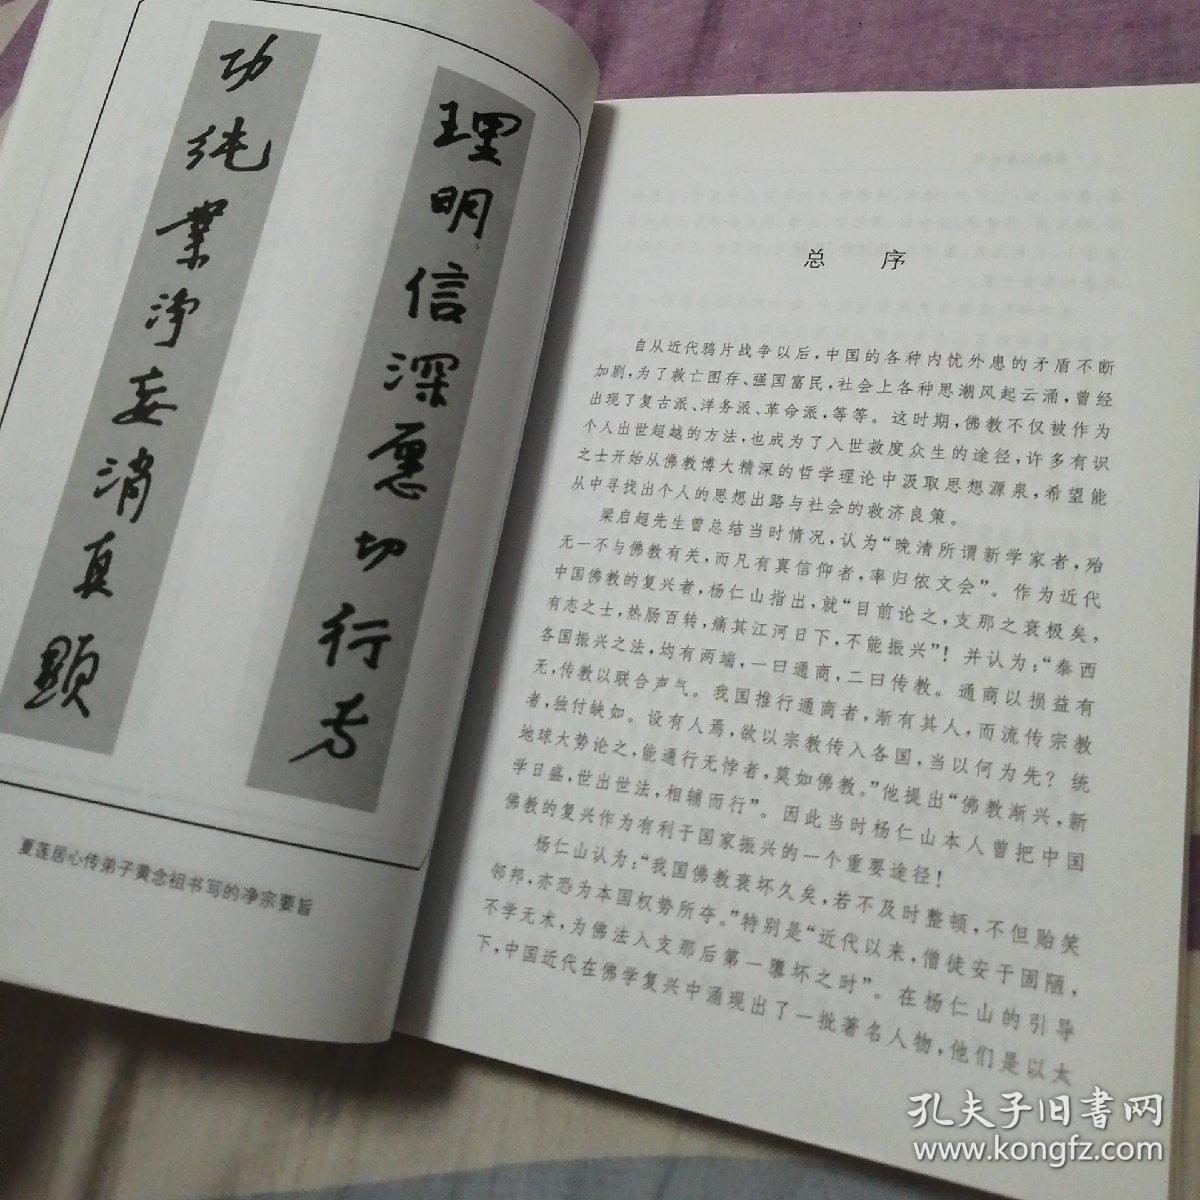 理明信深愿切行专
功纯业净妄消真显
夏莲居心传弟子黄念祖书写的净宗要旨
总 序
自从近代鸦片战争以后，中国的各种内忧外患的矛盾不断
加剧，为了救亡图存、强国富民，社会上各种思潮风起云涌，曾经
出现了复古派、洋务派、革命派，等等。这时期，佛教不仅被作为
个人出世超越的方法，也成为了入世救度众生的途径，许多有识
之士开始从佛教博大精深的哲学理论中汲取思想源泉，希望能
从中寻找出个人的思想出路与社会的救济良策。
梁启超先生曾总结当时情况，认为“晚清所谓新学家者，殆
无一不与佛教有关，而凡有真信仰者，率归依文会”。作为近代
中国佛教的复兴者，杨仁山指出，就“目前论之，支那之衰极矣，
有志之士，热肠百转，痛其江河日下，不能振兴”！并认为：“泰西
各国振兴之法，均有两端，一曰通商，二曰传教。通商以损益有
无，传教以联合声气。我国推行通商者，渐有其人，而流传宗教
者，独付缺如。设有人焉，欲以宗教传入各国，当以何为先？统
地球大势论之，能通行无悖者，莫如佛教。”他提出“佛教渐兴，新
学日盛，世出世法，相辅而行”。因此当时杨仁山本人曾把中国
佛教的复兴作为有利于国家振兴的一个重要途径！
杨仁山认为：“我国佛教衰坏久矣，若不及时整顿，不但贻笑
邻邦，亦恐为本国权势所夺。”特别是“近代以来，僧徒安于固陋，
不学无术，为佛法入支那后第一隳坏之时”。在杨仁山的引导
下，中国近代在佛学复兴中涌现出了一批著名人物，他们是以太
孔夫子旧书网
www.kongfz.com